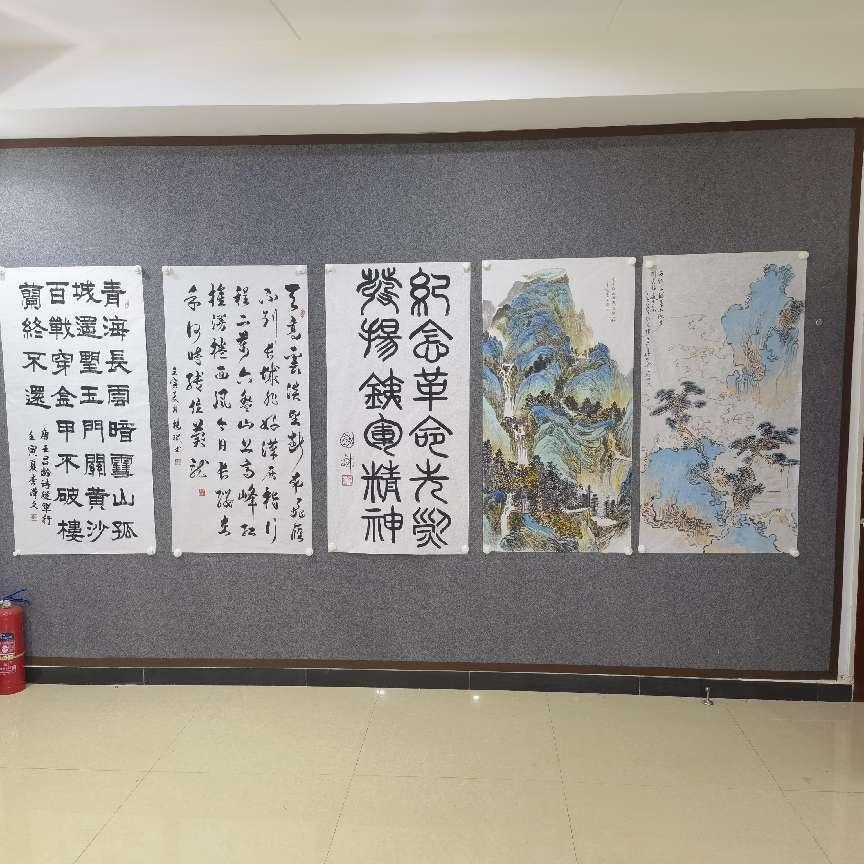 青海長雲暗雪山孤
城遥望玉門關黄沙
百戰穿金甲不破樓
蘭終不還
唐王昌齡詩從軍行
壬寅夏李澤文
天高雲淡望断南飛雁
不到長城非好漢屈指行
程二萬六盤山上高峰红
旗漫捲西風今日长缨在
手何時縛住蒼龍
壬寅夏月
紀念革命先烈
發揚銕軍精神